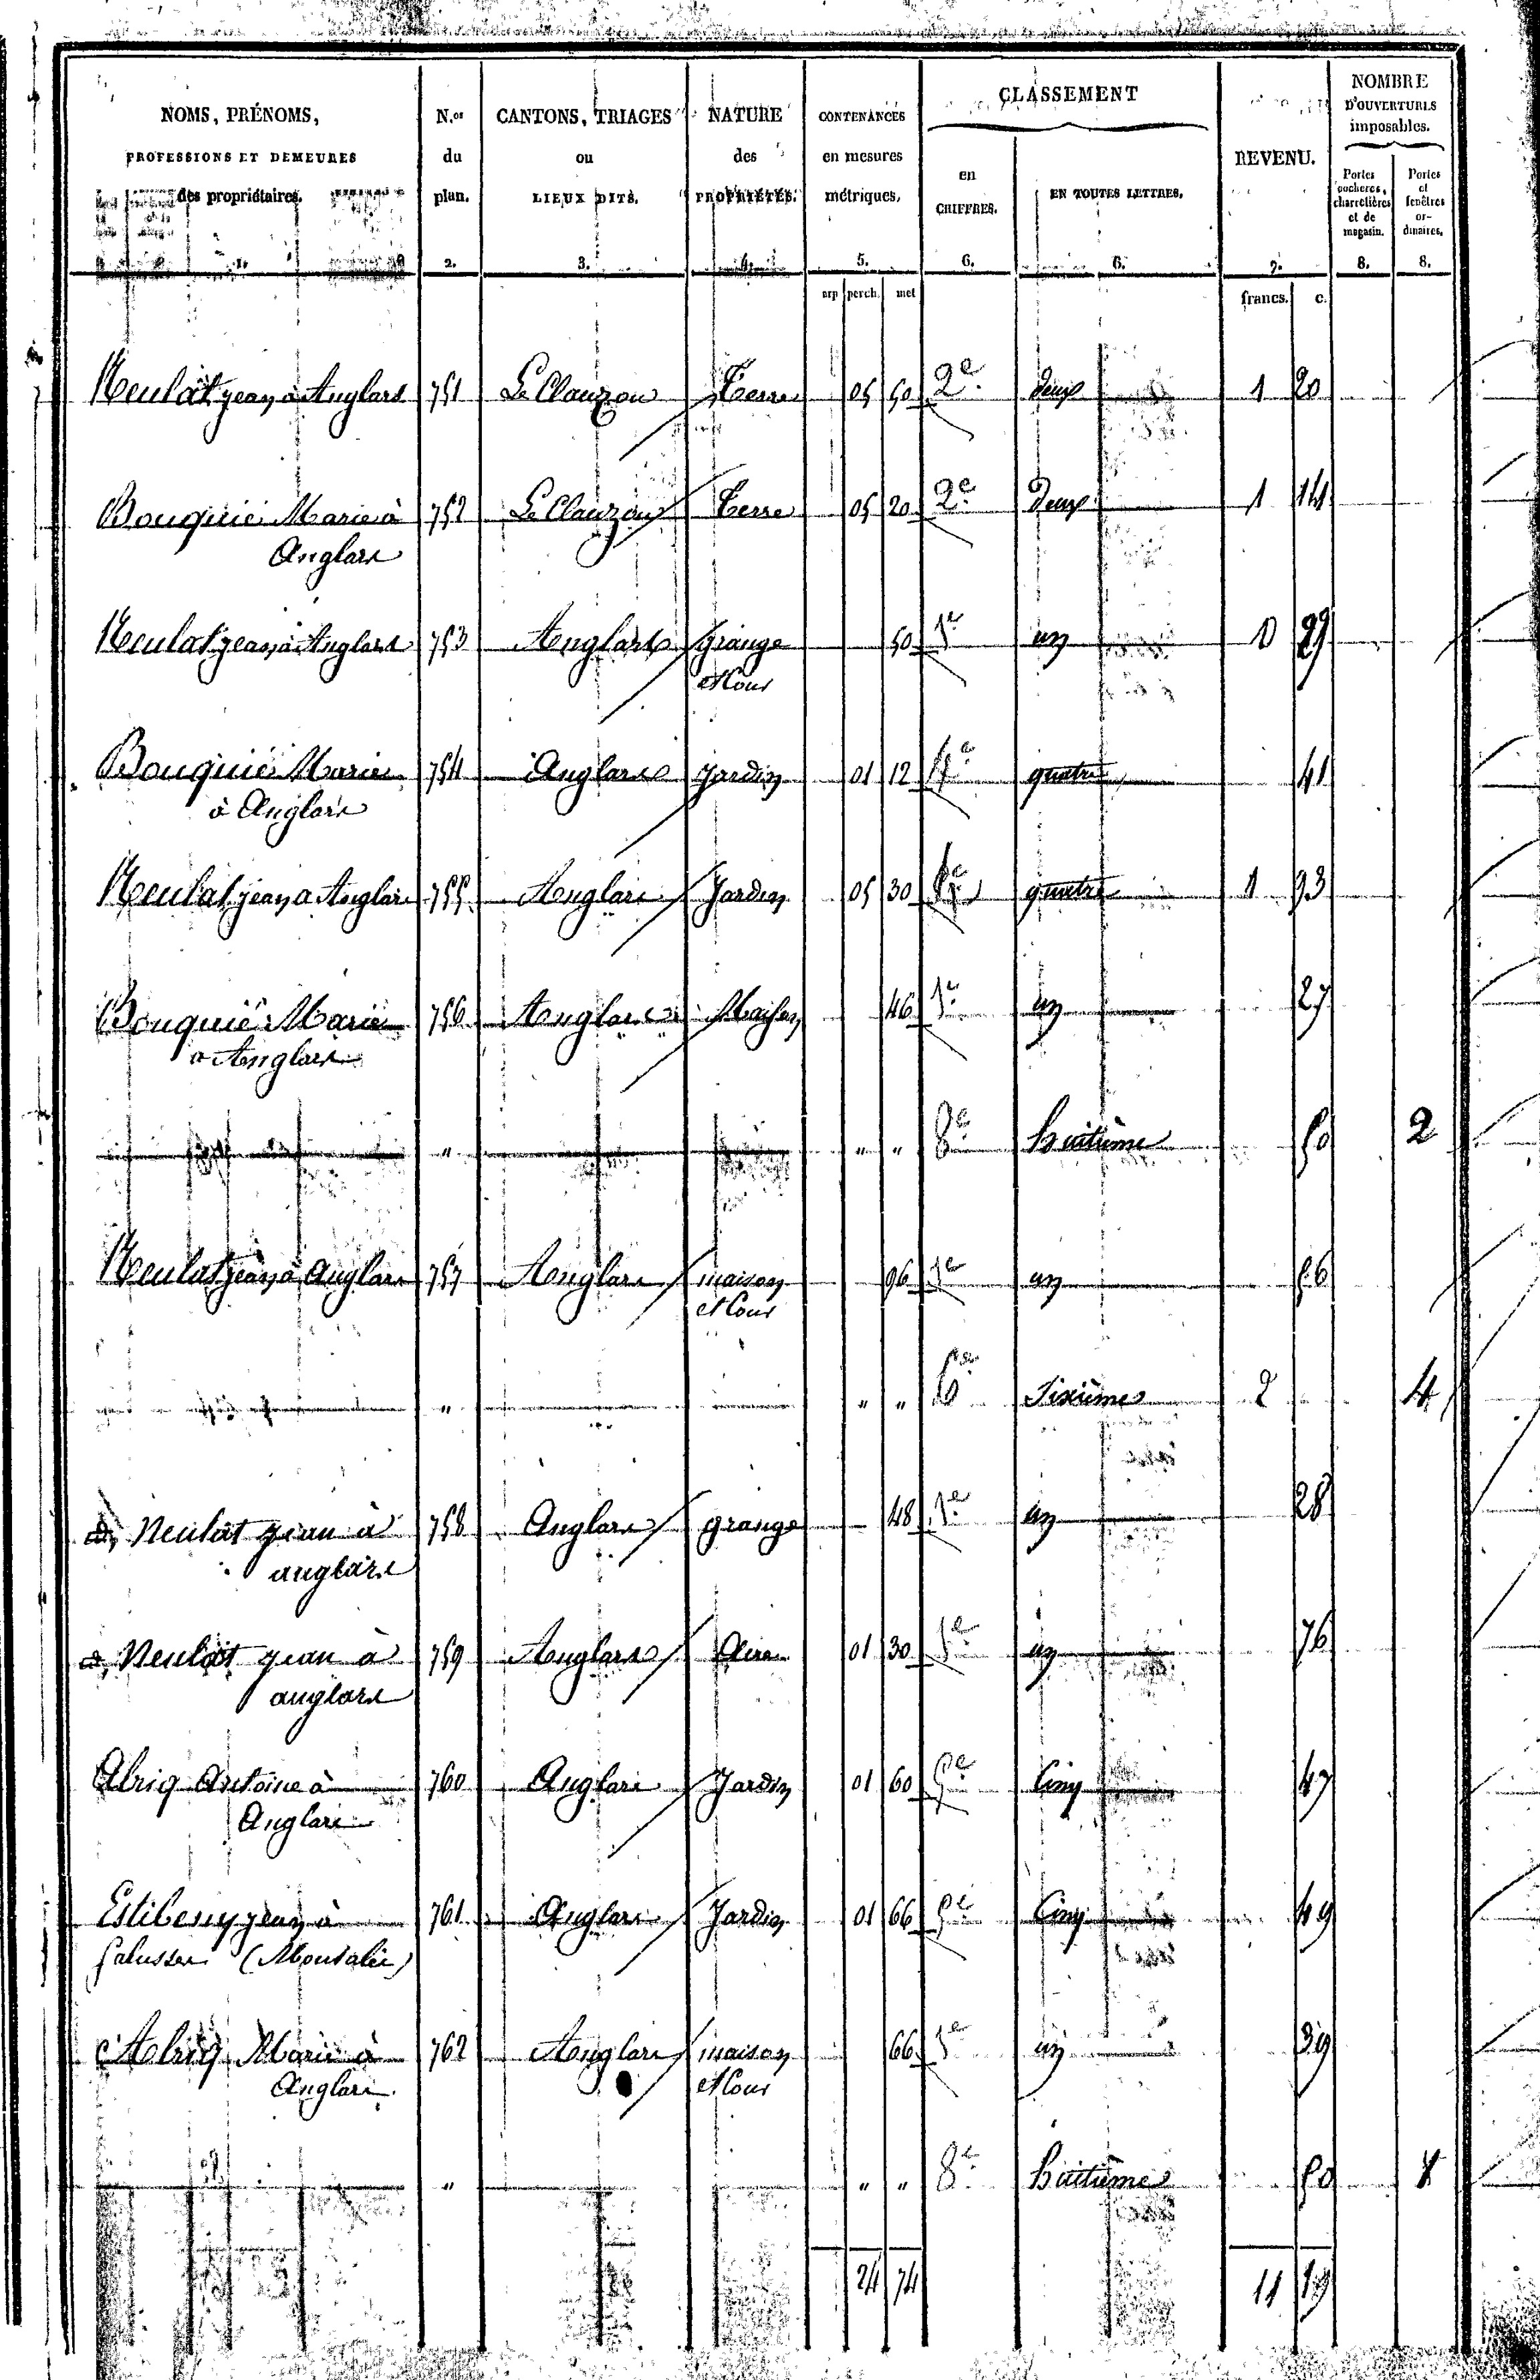 NOMS, PRÉNOMS, PROFESSIONS ET DEMEURES des propriétaires. 1.
N.os du plan. 2.
CANTONS, TRIAGES ou LIEUX DITS. 3.
NATURE des PROPRIÉTÉS. 4.
CONTENANCES en mesures métriques. 5.
CLASSEMENT
en CHIFFRES. 6.
EN TOUTES LETTRES. 6.
REVENU. 7.
NOMBRE D'OUVERTURES imposables.
Portes cochères, charretières et de magasin. 8.
Portes et fenêtres ordinaires. 8.
arp perch. met francs. c.
Neulat jean à Anglars 751 Le Clauzou Terre 05 50 2e deux 1 20
Bouquié Marie à 752 Le Clauzou Terre 05 20 2e Deux 1 14
Anglars
Neulat jean à Anglars 753 Anglars grange 50 1e un 0 29
et Cour
Bouquié Marie 754 Anglars Jardin 01 12 4e quatre 41
à Anglars
Neulat jean a Anglars 755 Anglars Jardin 05 30 4e quatre 1 93
Bouquié Marie 756 Anglars Maison 46 1e un 27
a Anglars
" " " 8e huitième 50 2
Neulat jean à Anglars 757 Anglars maison 96 1e un 56
et Cour
" " " 6e Sixième 2 4
Neulat jean à 758 Anglars grange 48 1e un 28
anglars
Neulat jean à 759 Anglars Aire 01 30 1e un 76
anglars
Alriq Antoine à 760 Anglars Jardin 01 60 5e Cinq 47
Anglars
jean à 761 Anglars Jardin 01 66 5e Cinq 49
Alriq Marie à 762 Anglars maison 66 1e un 39
Anglars et Cour
" " " 8e huitième 50
24 74 11 19